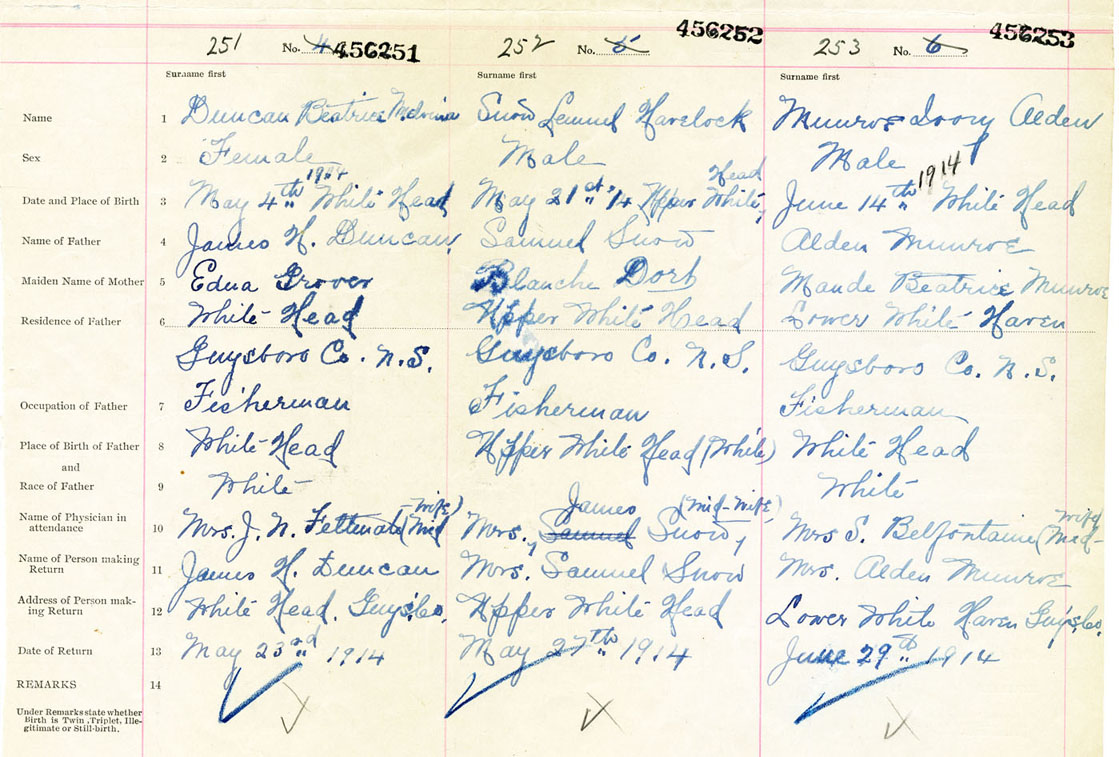 251 No. 4 456251 252 No. 5 456252 253 No. 6 456253
Surname first Surname first Surname first
Name 1 Duncan Beatrice Snow Lemuel Havelock Munroe Ivory Alden
Sex 2 Female Male Male
1914 Head 1914
Date and Place of Birth 3 May 4th White Head May 21st 14 Upper White, June 14th White Head
Name of Father 4 James H. Duncan, Samuel Snow Alden Munroe
Maiden Name of Mother 5 Edna Grover Blanche Dort Maude Beatrice Munroe
Residence of Father 6 White Head Upper White Head Lower White Haven
Guysboro Co. N.S. Guysboro Co. N.S. Guysboro Co. N.S.
Occupation of Father 7 Fisherman Fisherman Fisherman
Place of Birth of Father 8 White Head Upper White Head (White) White Head
and
Race of Father 9 White White
wife) James (mid-wife) wife
Name of Physician in
attendance 10 Mrs. J. N. (Mid Mrs. Samuel Snow, Mrs S. Belfontaine (Mid-
Name of Person making
Return 11 James H. Duncan Mrs. Samuel Snow Mrs. Alden Munroe
Address of Person mak-
ing Return 12 White Head, Guys.Co. Upper White Head Lower White Haven Guys.Co.
Date of Return 13 May 23rd 1914 May 27th 1914 June 29th 1914
REMARKS 14
Under Remarks state whether
Birth is Twin, Triplet, Ille-
gitimate or Still-birth.